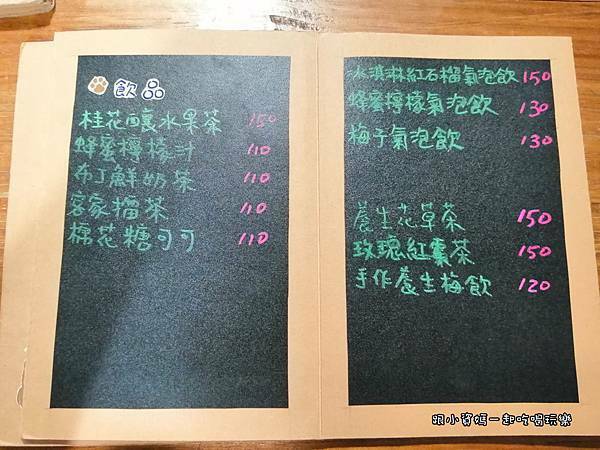 飲品
桂花釀水果茶 150
蜂蜜檸檬汁 110
布丁鮮奶茶 110
客家擂茶 110
棉花糖可可 110
冰淇淋紅石榴氣泡飲 150
蜂蜜檸檬氣泡飲 130
梅子氣泡飲 130
養生花草茶 150
玫瑰紅棗茶 150
手作養生梅飲 120
跟小資媽一起吃喝玩樂